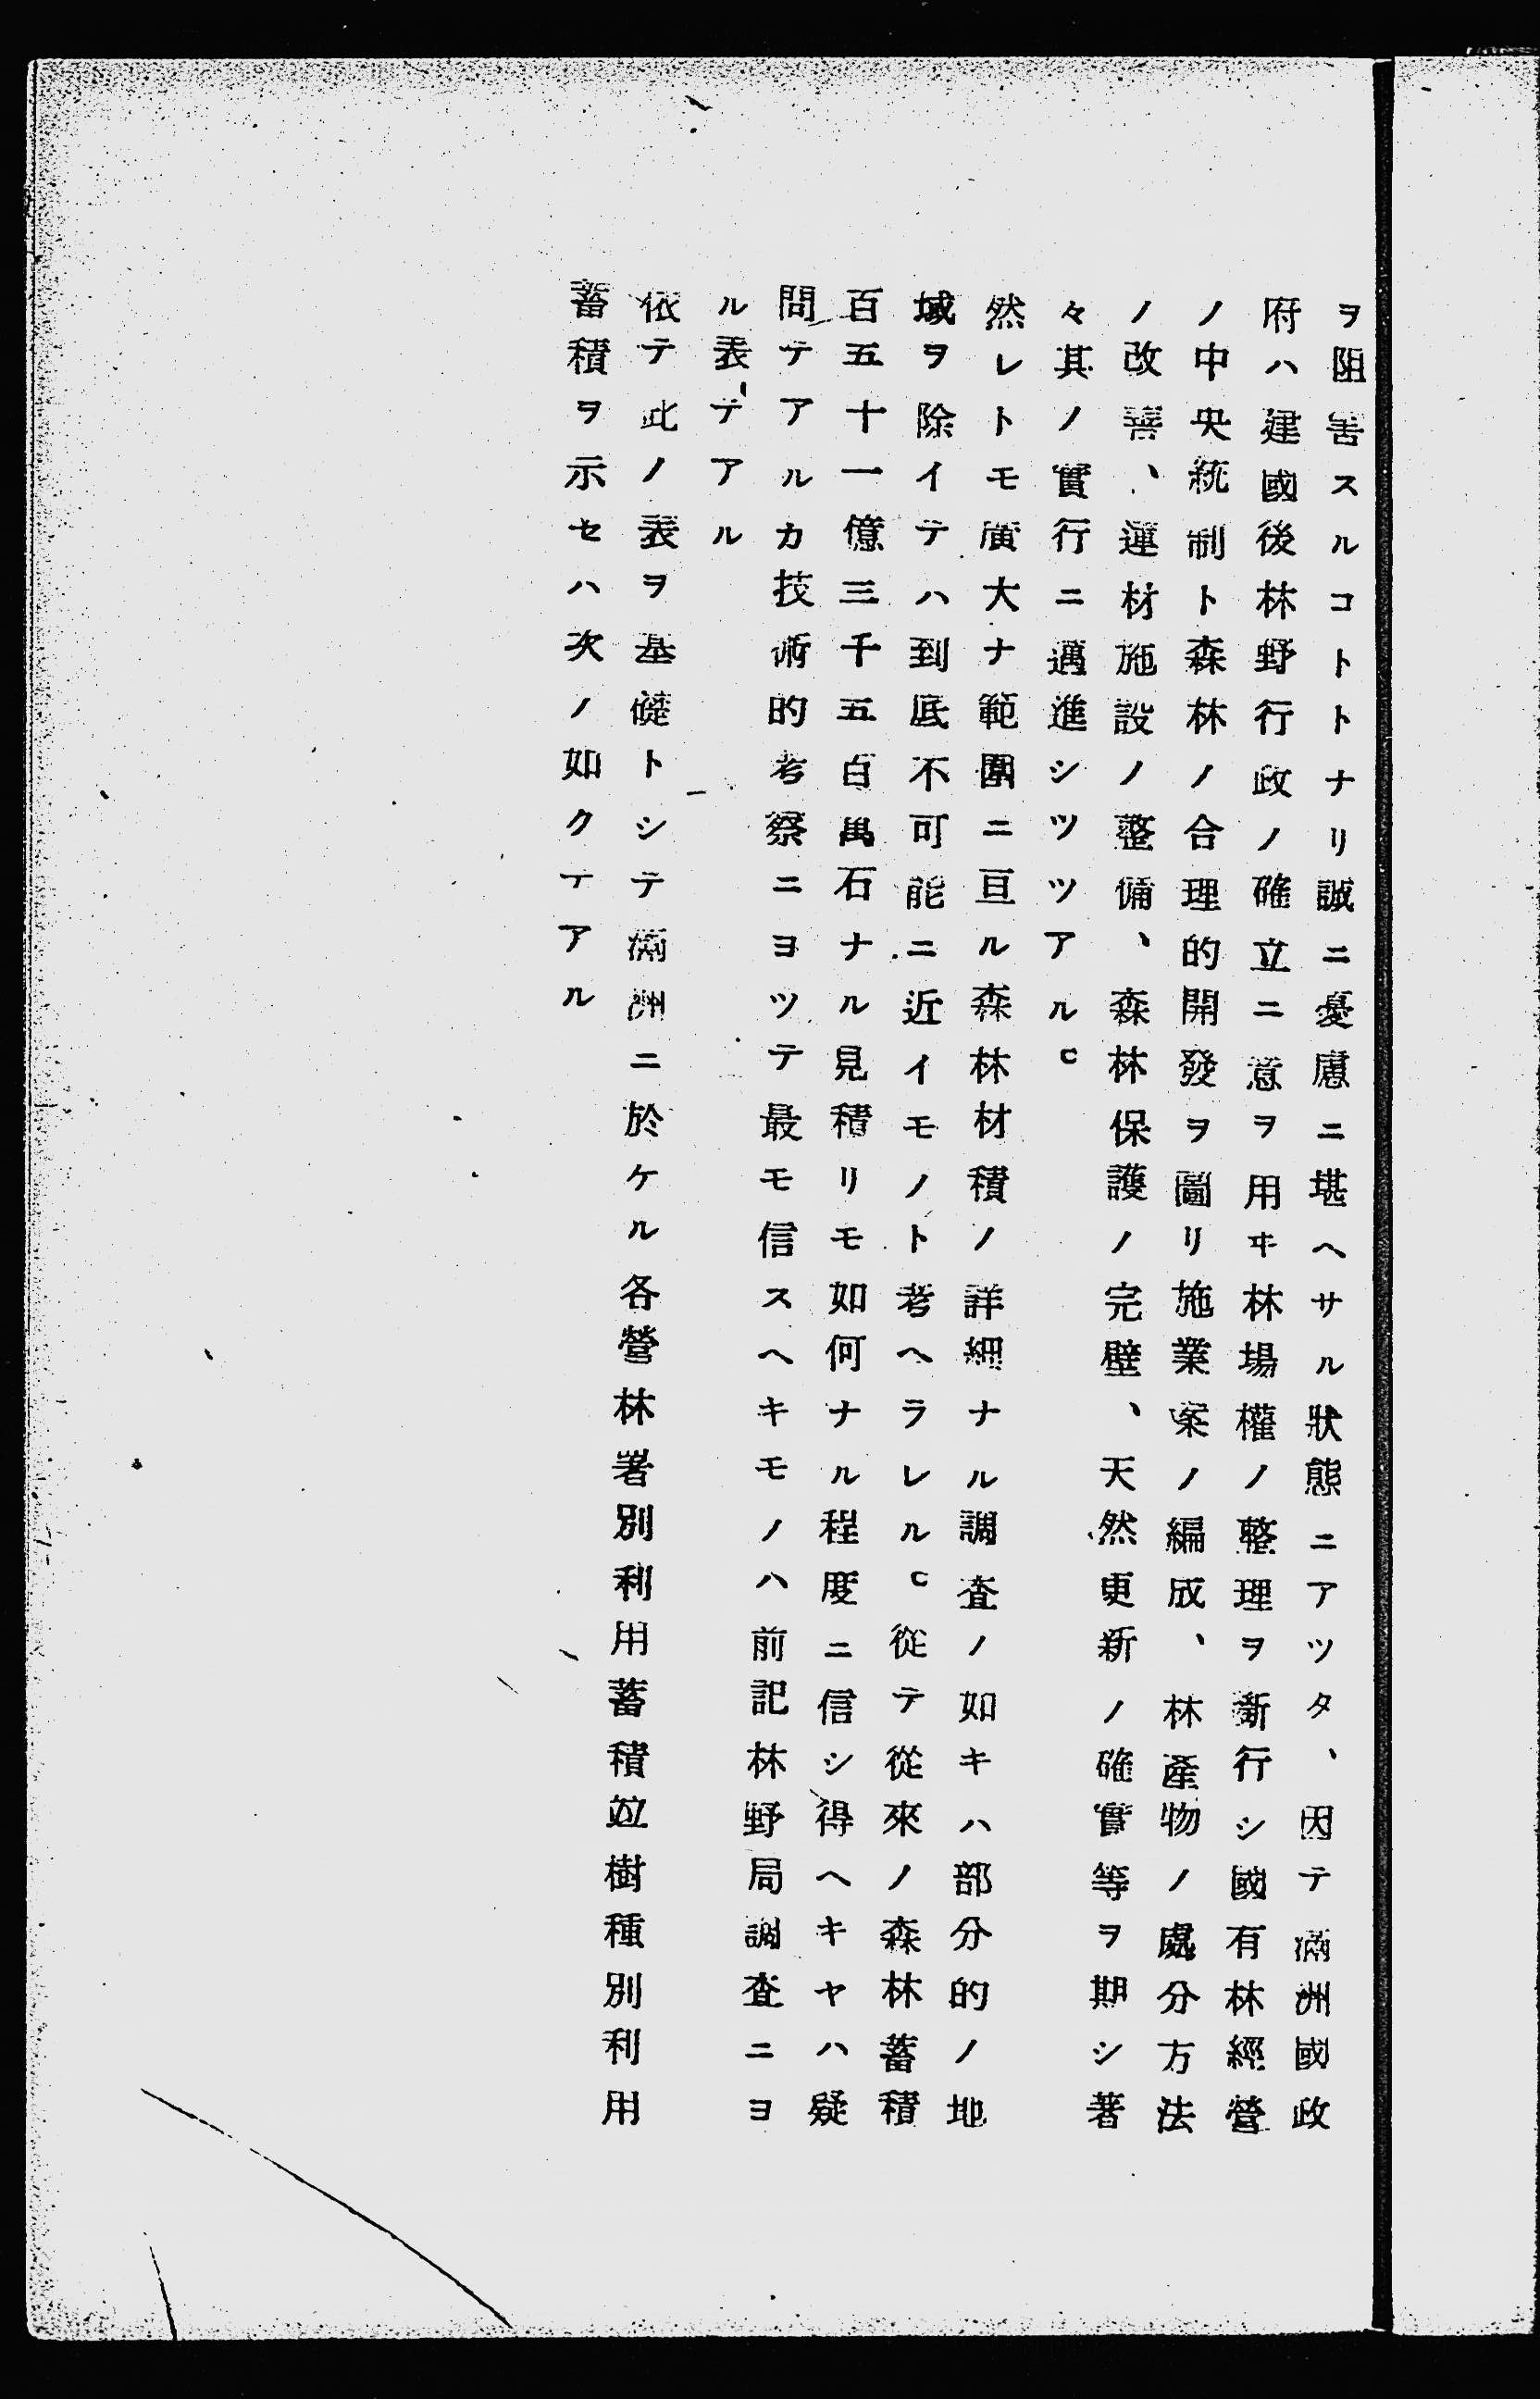 ヲ阻害スルコトトナリ誠ニ憂慮ニ堪ヘサル狀態ニアツタ、因テ滿洲國政
府ハ建國後林野行政ノ確立ニ意ヲ用ヰ林場權ノ整理ヲ斷行シ國有林經營
ノ中央統制ト森林ノ合理的開發ヲ圖リ施業案ノ編成、林產物ノ處分方法
ノ改善、運材施設ノ整備、森林保護ノ完壁、天然更新ノ確實等ヲ期シ著
々其ノ實行ニ邁進シツツアル。
然レトモ廣大ナ範圍ニ亘ル森林材積ノ詳細ナル調査ノ如キハ部分的ノ地
域ヲ除イテハ到底不可能ニ近イモノト考ヘラレル。從テ從來ノ森林蓄積
百五十一億三千五百萬石ナル見積リモ如何ナル程度ニ信シ得ヘキヤハ疑
問テアルカ技術的考察ニヨツテ最モ信スヘキモノハ前記林野局調査ニヨ
ル表テアル
依テ此ノ表ヲ基礎トシテ滿洲ニ於ケル各營林署別利用蓄積竝樹種別利用
蓄積ヲ示セハ次ノ如クテアル